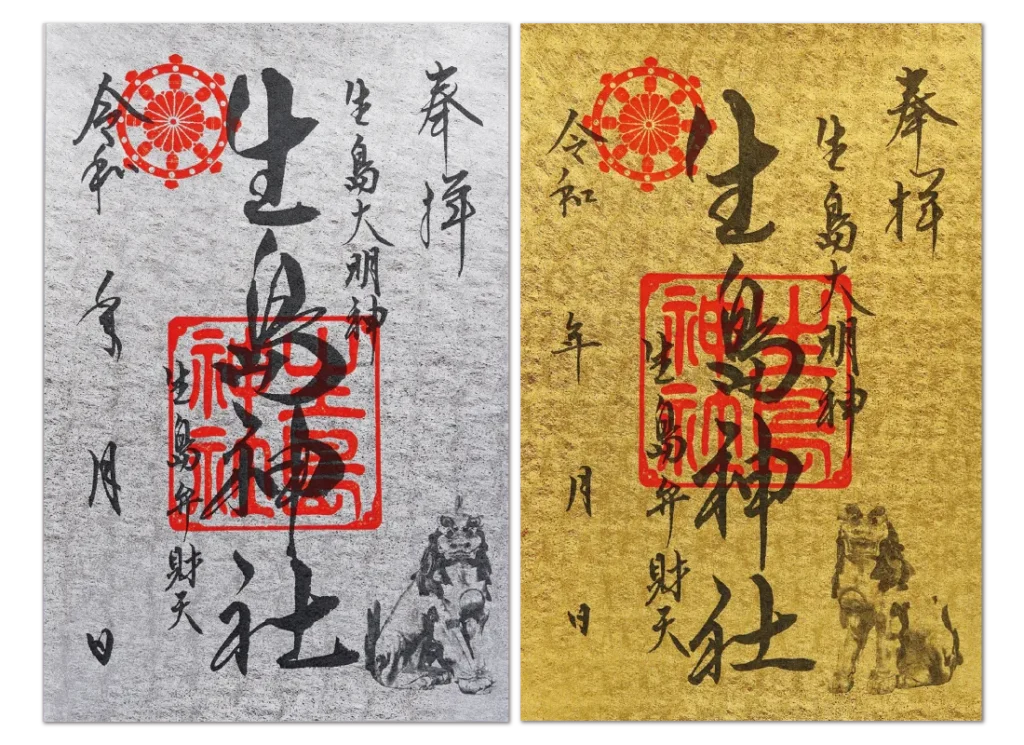 奉拝
生島大明神
生島神社
生島神社
生島弁財天
令和 年 月 日
奉拝
生島大明神
生島神社
生島神社
生島弁財天
令和 年 月 日